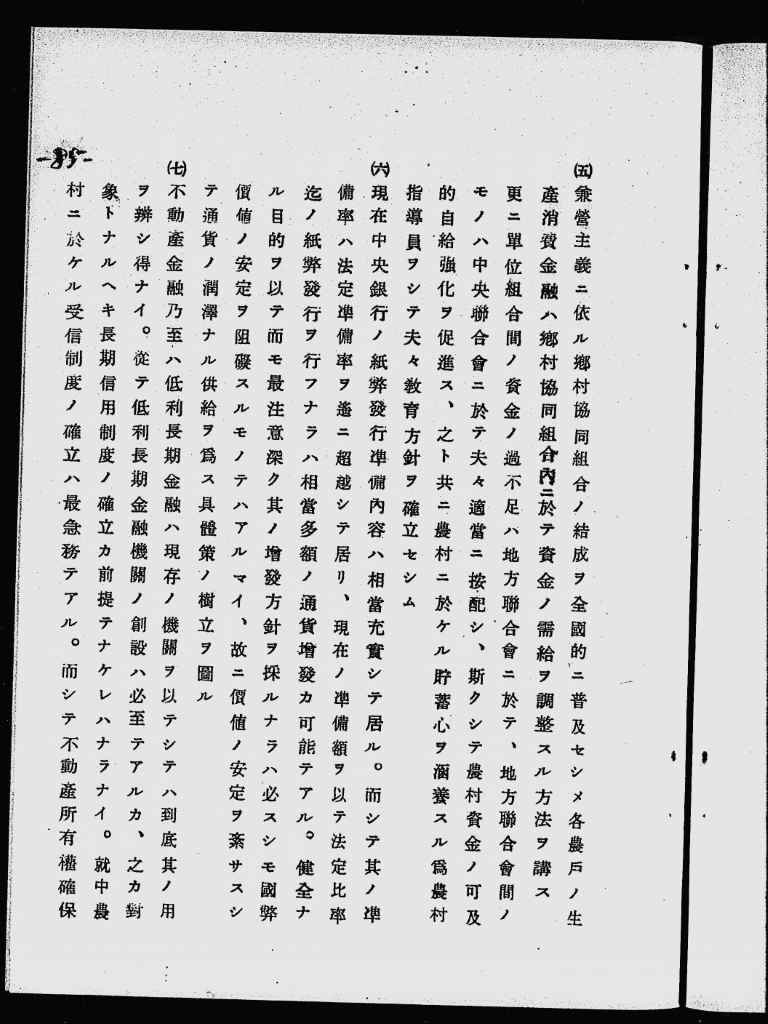 ㈤兼營主義ニ依ル鄕村協同組合ノ結成ヲ全國的ニ普及セシメ各農戶ノ生
產消費金融ハ鄕村協同組合內ニ於テ資金ノ需給ヲ調整スル方法ヲ講ス
更ニ單位組合間ノ資金ノ過不足ハ地方聯合會ニ於テ、地方聯合會間ノ
モノハ中央聯合會ニ於テ夫々適當ニ按配シ、斯クシテ農村資金ノ可及
的自給强化ヲ促進ス、之ト共ニ農村ニ於ケル貯蓄心ヲ涵養スル爲農村
指導員ヲシテ夫々敎育方針ヲ確立セシム
㈥現在中央銀行ノ紙弊發行準備內容ハ相當充實シテ居ル。而シテ其ノ準
備率ハ法定準備率ヲ遙ニ超越シテ居リ、現在ノ準備額ヲ以テ法定比率
迄ノ紙弊發行ヲ行フナラハ相當多額ノ通貨增發カ可能テアル。健全ナ
ル目的ヲ以テ而モ最注意深ク其ノ增發方針ヲ採ルナラハ必スシモ國弊
價値ノ安定ヲ阻礙スルモノテハアルマイ、故ニ價値ノ安定ヲ紊サスシ
テ通貨ノ潤澤ナル供給ヲ爲ス具體策ノ樹立ヲ圖ル
㈦不動產金融乃至ハ低利長期金融ハ現存ノ機關ヲ以テシテハ到底其ノ用
ヲ辨シ得ナイ。從テ低利長期金融機關ノ創設ハ必至テアルカ、之カ對
象トナルヘキ長期信用制度ノ確立カ前提テナケレハナラナイ。就中農
村ニ於ケル受信制度ノ確立ハ最急務テアル。而シテ不動產所有權確保
-85-